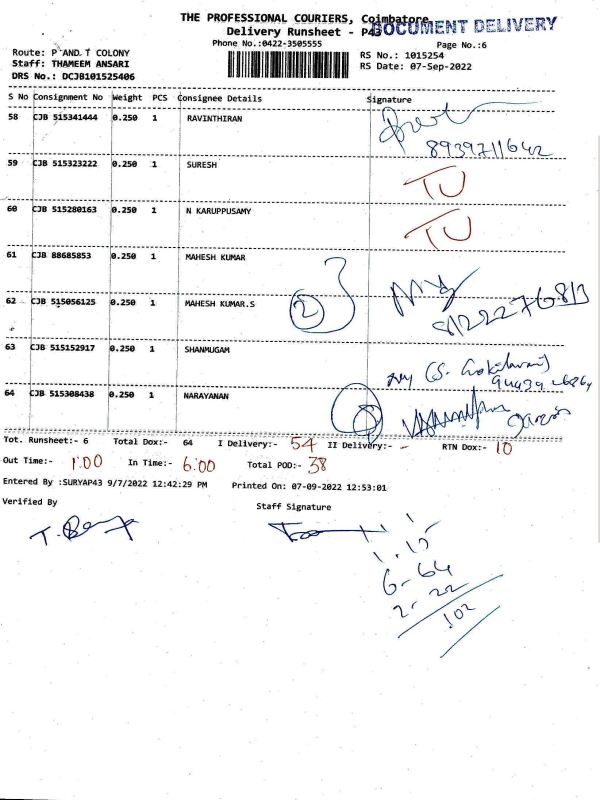 THE PROFESSIONAL COURIERS, Coimbatore
DOCUMENT DELIVERY
Delivery Runsheet - P43
Phone No.:0422-3505555
Page No.:6
Route: P AND T COLONY
RS No.: 1015254
Staff: THAMEEM ANSARI
RS Date: 07-Sep-2022
DRS No.: DCJB101525406
S No Consignment No Weight PCS Consignee Details Signature
58 CJB 515341444 0.250 1 RAVINTHIRAN
8939711642
59 CJB 515323222 0.250 1 SURESH TU
60 CJB 515280163 0.250 1 N KARUPPUSAMY TU
61 CJB 88685853 0.250 1 MAHESH KUMAR
62 CJB 515056125 0.250 1 MAHESH KUMAR.S 2
63 CJB 515152917 0.250 1 SHANMUGAM
64 CJB 515308438 0.250 1 NARAYANAN
Tot. Runsheet:- 6 Total Dox:- 64 I Delivery:- 54 II Delivery:- - RTN Dox:- 10
Out Time:- 1:00 In Time:- 6:00 Total POD:- 38
Entered By :SURYAP43 9/7/2022 12:42:29 PM Printed On: 07-09-2022 12:53:01
Verified By Staff Signature
1. 15
6. 64
2. 22
102